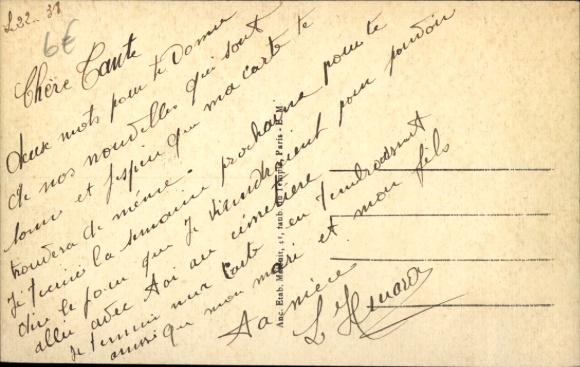 L22..31
6€
Chère Tante
deux mots pour te donner
de nos nouvelles qui sont
bonne et j'espère que ma carte te
trouvera de même.
Je t'écrirai la semaine prochaine pour te
dire le jour que je viendraient pour pouvoir
aller avec toi au cimetière
Je termine ma Carte en t'embrassant
ainsi que mon mari et mon fils
Ta nièce
Anc. Etab. Malcuit, faub. du Temple, Paris - B. M.